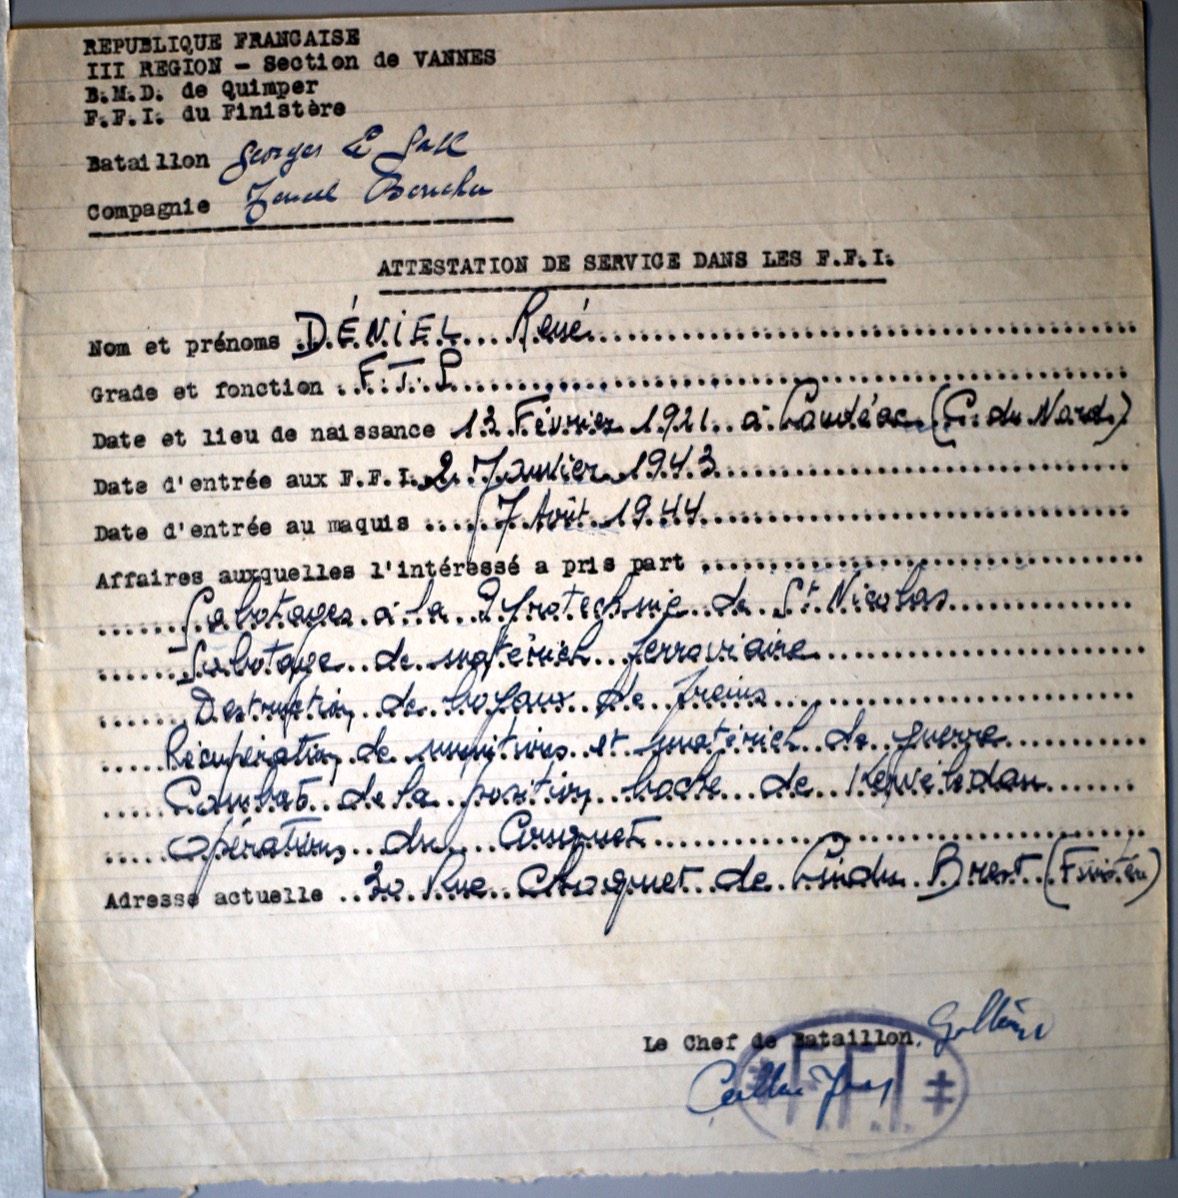 REPUBLIQUE FRANCAISE
III REGION - Section de VANNES
B.M.D. de Quimper
F.F.I. du Finistère
Bataillon Georges Le Gall
Compagnie
ATTESTATION DE SERVICE DANS LES F.F.I.
Nom et prénoms DÉNIEL René
Grade et fonction F.T.P
Date et lieu de naissance 13 Février 1921 à Loudéac (C. du Nord)
Date d'entrée aux F.F.I. 2 Janvier 1943
Date d'entrée au maquis 7 Août 1944
Affaires auxquelles l'intéressé a pris part
Sabotages à la Pyrotechnie de St Nicolas
Sabotage de matériel ferroviaire
Destruction de boyaux de freins
Récupération de munitions et matériel de guerre
Combat de la position boche de
opérations du Conquet
Adresse actuelle 30 Rue Choquet de Lindu Brest (Finistère)
Le Chef de Bataillon,
F.F.I.